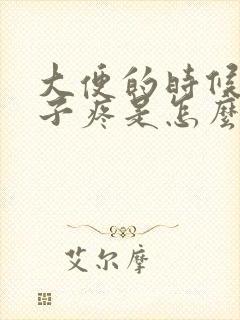 大便的時候
子疼是怎麼
艾尔摩